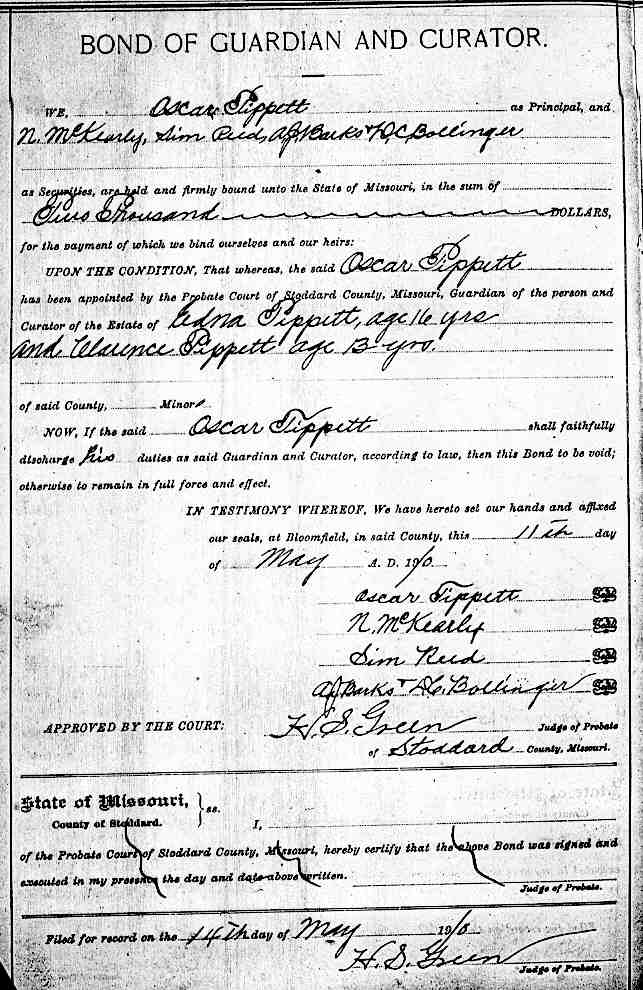 BOND OF GUARDIAN AND CURATOR.
WE, Oscar Tippett as Principal, and
N. McKearly, Sim Reed, A J Barks + D C Bollinger
as Securities, are held and firmly bound unto the State of Missouri, in the sum of
Two Thousand DOLLARS,
for the payment of which we bind ourselves and our heirs:
UPON THE CONDITION, That whereas, the said Oscar Tippett
has been appointed by the Probate Court of Stoddard County, Missouri, Guardian of the person and
Curator of the Estate of Edna Tippett, age 16 yrs
and Clarence Tippett age 13 yrs.
of said County, Minors
NOW, If the said Oscar Tippett shall faithfully
discharge his duties as said Guardian and Curator, according to law, then this Bond to be void;
otherwise to remain in full force and effect.
IN TESTIMONY WHEREOF, We have hereto set our hands and affixed
our seals, at Bloomfield, in said County, this 11th day
of May A. D. 190
Oscar Tippett Seal
N. McKearly Seal
Sim Reed Seal
A J Barks + D. C. Bollinger Seal
APPROVED BY THE COURT: H. S. Green Judge of Probate
of Stoddard County, Missouri.
State of Missouri, } ss.
County of Stoddard.
I,
of the Probate Court of Stoddard County, Missouri, hereby certify that the above Bond was signed and
executed in my presence the day and date above written.
Judge of Probate.
Filed for record on the 14th day of May 190
H. S. Green
Judge of Probate.